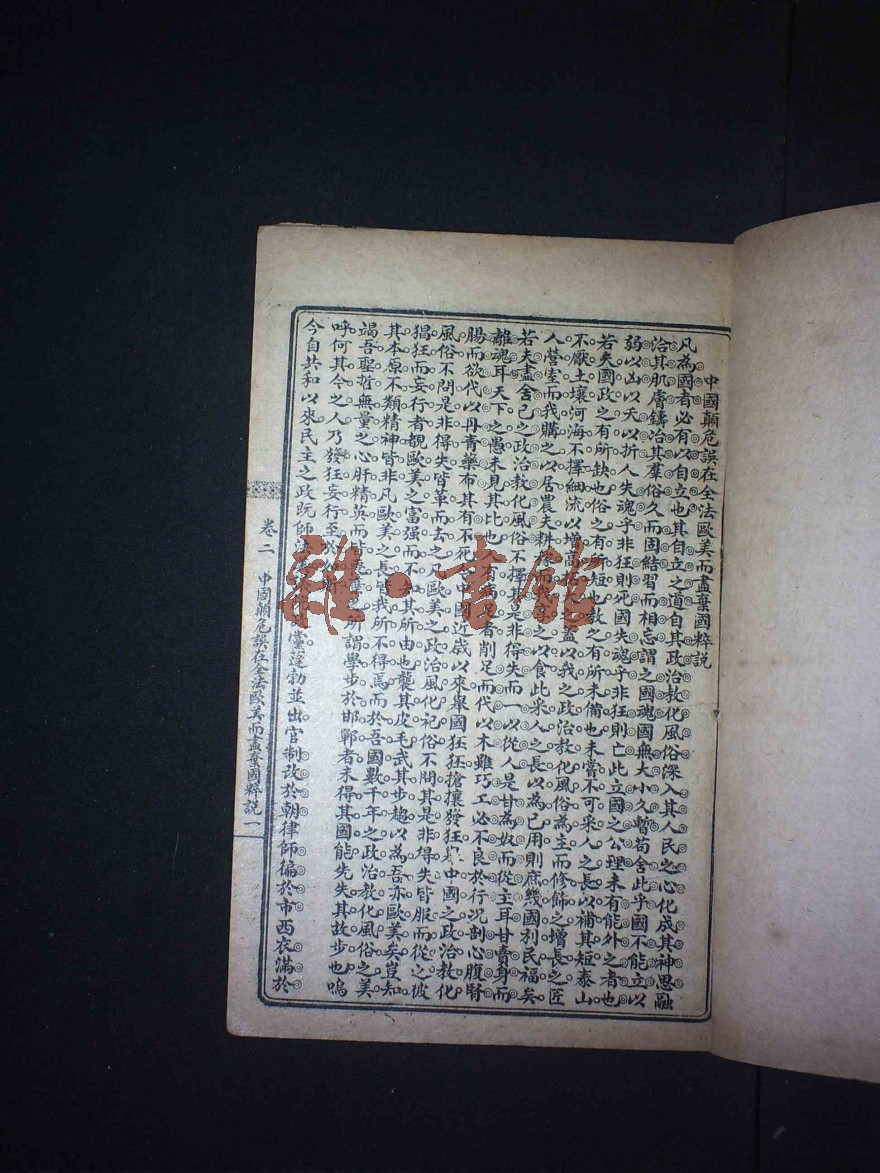 中國顛危誤在全法歐美而盡棄國粹說
凡為國者必有以自立也其自立之道自其政治教化風俗深入其人民之心化成其神思融
洽其肌膚鑄冶其羣俗久而固結習而相忘謂之國魂國無大小久暫苟舍此乎國不能立以
弱以凶以夭以折人失魂乎非狂則死國失魂乎非狂則亡此立國之公理未有能外之者也
若夫國政之有所缺也俗之有所短也教之有所未備也未嘗不可采人之長以補其短泰山
不厭土壤河海不擇細流以增高 蓋以我之政治教化風俗為主而修飾之增長之匠
人營室而我購之以居農夫耕 而我 之以食此采人之長以為己用則庶幾國利民福矣
若夫盡舍己之政治教化風俗不擇其是非得失而一以從人是甘為奴而從主耳甘賣身而
離魂耳天下之愚未見其比也 者削足而代以木雖巧工必不良於行况剖心腹腎
腸而欲代以丹青藥布其有不死 中國近歲以來舉國狂狂搶攘發狂 中國之政治教化
風俗不問是非得失皆革而去之凡歐美之政治風化祀俗不問其是非得失皆服而從之彼
猖狂而妄行者覩歐美之富强而不知其所由也襲其皮毛武其步趨以為吾亦歐美矣豈知
其本原不類精神皆非凡歐美之長皆我所不得焉而於吾國數千年之政治教化風俗之美
竭吾聖哲無量之心肝精英而皆 所謂學步於邯鄲者未得其國能先失其故步也嗚
呼何其今之人乃發狂妄行至於
今自共和以來民主之政既師法 黨蓬勃並出官制改於朝律師徧於市西衣滿於
卷二 中國顛危誤在全法歐美而盡棄國粹說 一
雜·書館